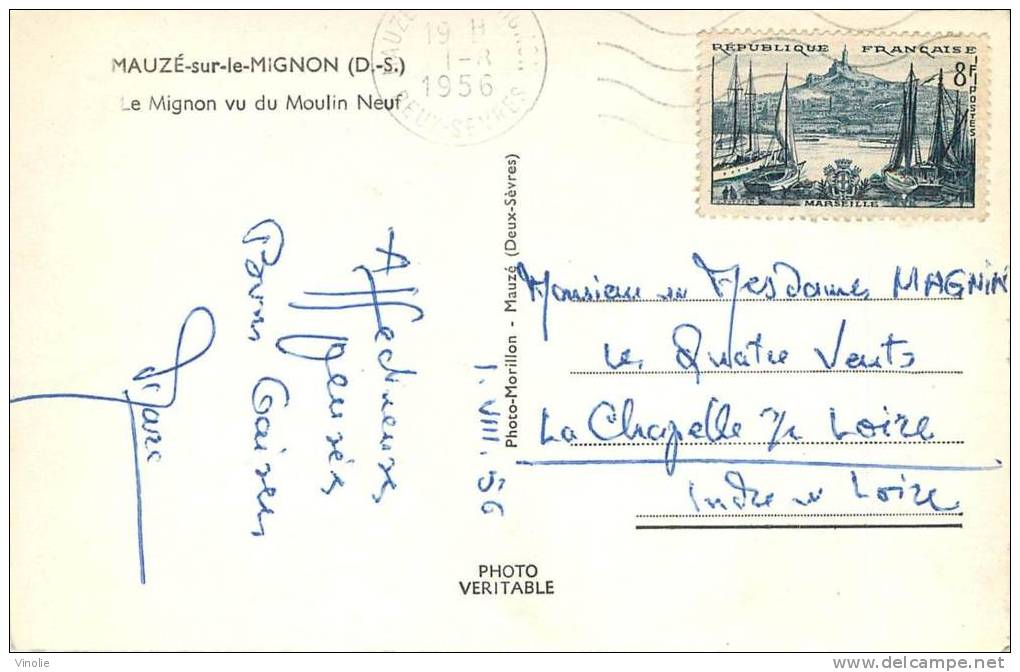 MAUZÉ-sur-le-MIGNON (D.-S.)
Le Mignon vu du Moulin Neuf
19 H
1-8
1956
DEUX-SEVRES
RÉPUBLIQUE FRANÇAISE
8F
POSTES
MARSEILLE
Affectueuses
Pensées
Bons Baisers
Marc
1.VIII.56
Photo-Morillon - Mauzé (Deux-Sèvres)
Monsieur et Mesdames MAGNIN
Les Quatre Vents
La Chapelle s/ Loire
Indre et Loire
PHOTO
VERITABLE
Vinolie
www.delcampe.net